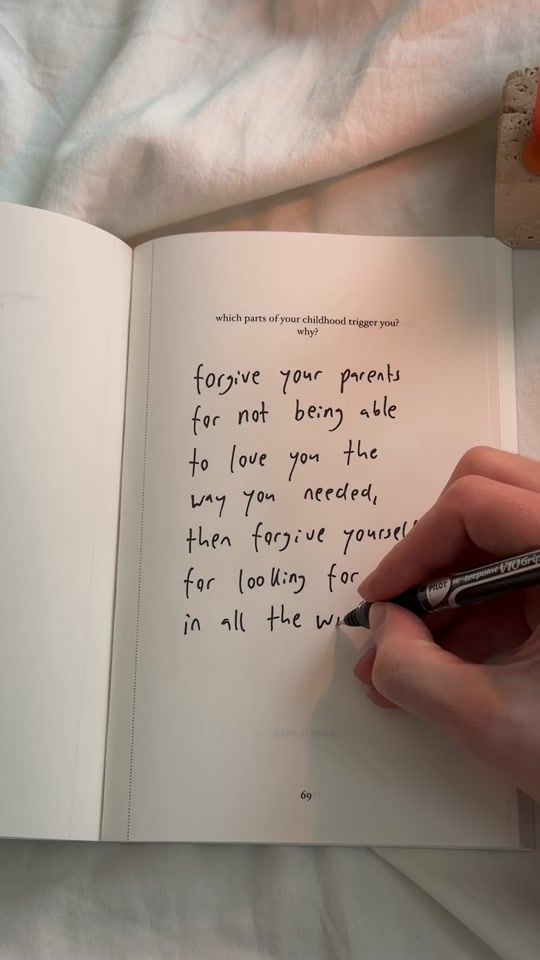 which parts of your childhood trigger you?
why?
forgive your parents
for not being able
to love you the
way you needed,
then forgive yourself
for looking for
in all the
PILOT Hi-tecpoint V10 Grip
69